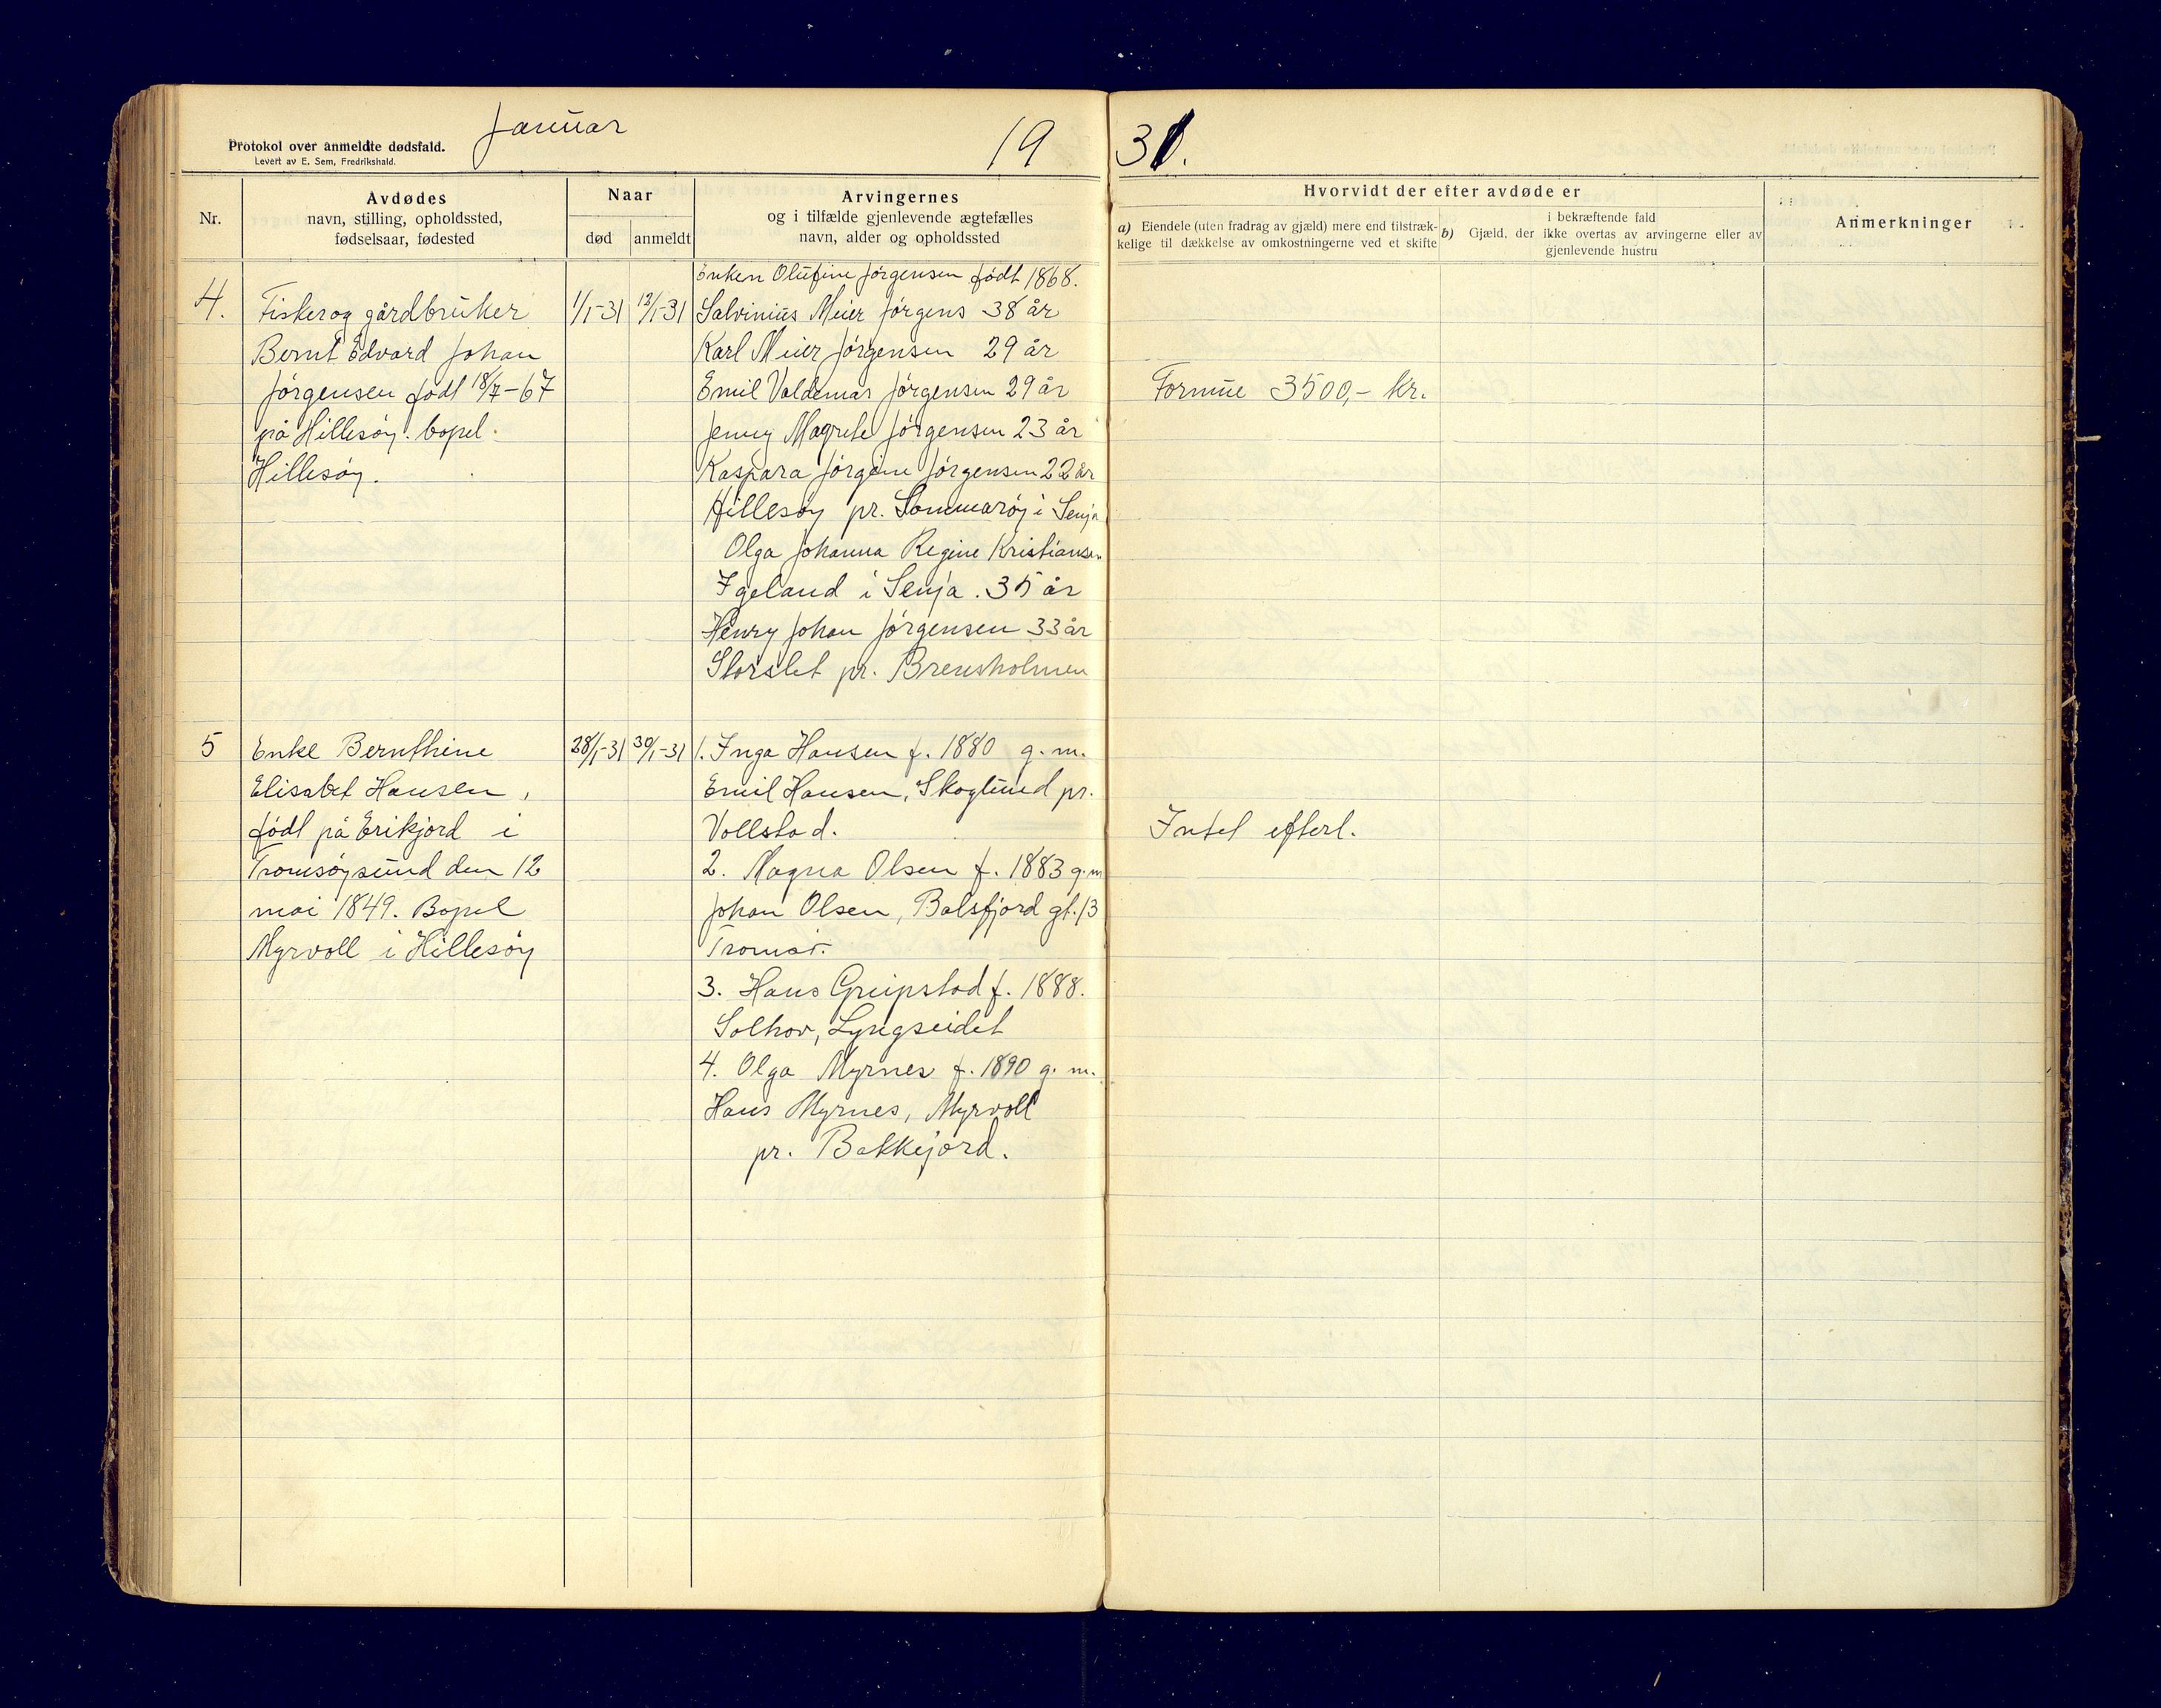 Januar
Protokol over anmeldte dødsfald.
Levert av E. Sem, Fredrikshald.
19 31.
Nr.
Avdødes
navn, stilling, opholdssted,
fødselsaar, fødested
Naar
død
anmeldt
Arvingernes
og i tilfælde gjenlevende ægtefælles
navn, alder og opholdssted
Hvorvidt der efter avdøde er
a) Eiendele (uten fradrag av gjæld) mere end tilstræk-
kelige til dækkelse av omkostningerne ved et skifte
i bekræftende fald
b) Gjæld, der ikke overtas av arvingerne eller av
gjenlevende hustru
Anmerkninger
4.
Fisker og gårdbruker
Bernt Edvard Johan
Jørgensen født 18/7-67
på Hillesøy. bopel.
Hillesøy.
1/1-31
13/1-31
Enken Olufine Jørgensen født 1868.
Salvinius Meier Jørgens 38 år
Karl Meier Jørgensen 29 år
Emil Valdemar Jørgensen 29 år
Jenny Magrete Jørgensen 23 år
Kaspara Jørgine Jørgensen 22 år
Hillesøy pr. Sommarøy i Senja
Olga Johanna Regine Kristiansen
Igeland i Senja. 35 år
Henry Johan Jørgensen 33 år
Storslet pr. Brensholmen
Formue 3500,- kr.
5
Enke Bernthine
Elisabet Hansen,
født på Erikjord i
Tromsøysund den 12
mai 1849. Bopel
Myrvoll i Hillesøy
28/1-31
30/1-31
1. Inga Hansen f. 1880 g. m.
Emil Hansen, Skoglund pr.
Vollstad.
2. Magna Olsen f. 1883 g. m
Johan Olsen, Balsfjord gt. 13
Tromsø.
3. Hans Greipstad f. 1888.
Solhov, Lyngseidet
4. Olga Myrnes f. 1890 g. m.
Hans Myrnes, Myrvoll
pr. Bakkejord.
Intet efterl.